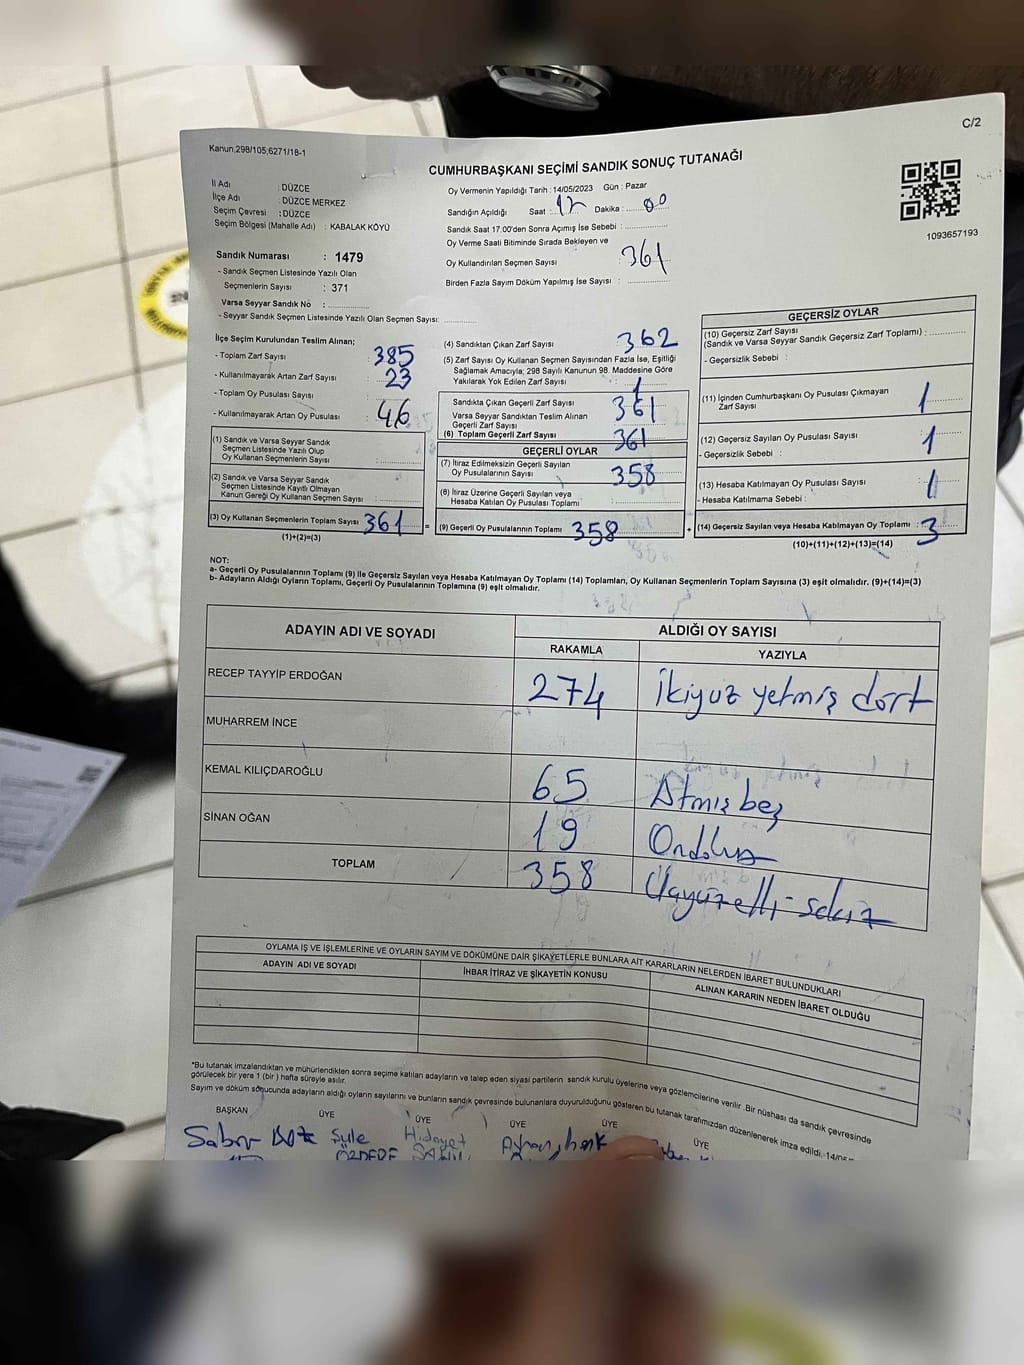 C/2
Kanun,298/105;6271/18-1
CUMHURBAŞKANI SEÇİMİ SANDIK SONUÇ TUTANAĞI
İl Adı : DÜZCE
İlçe Adı : DÜZCE MERKEZ
Seçim Çevresi : DÜZCE
Seçim Bölgesi (Mahalle Adı) : KABALAK KÖYÜ
Sandık Numarası : 1479
- Sandık Seçmen Listesinde Yazılı Olan
Seçmenlerin Sayısı : 371
Varsa Seyyar Sandık No :
- Seyyar Sandık Seçmen Listesinde Yazılı Olan Seçmen Sayısı:
Oy Vermenin Yapıldığı Tarih : 14/05/2023 Gün : Pazar
Sandığın Açıldığı Saat : 17 Dakika : 00
Sandık Saat 17.00'den Sonra Açımış İse Sebebi :
Oy Verme Saati Bitiminde Sırada Bekleyen ve
Oy Kullandırılan Seçmen Sayısı 361
Birden Fazla Sayım Döküm Yapılmış İse Sayısı :
1093657193
İlçe Seçim Kurulundan Teslim Alınan;
- Toplam Zarf Sayısı 385
- Kullanılmayarak Artan Zarf Sayısı 23
- Toplam Oy Pusulası Sayısı
- Kullanılmayarak Artan Oy Pusulası 46
(1) Sandık ve Varsa Seyyar Sandık
Seçmen Listesinde Yazılı Olup
Oy Kullanan Seçmenlerin Sayısı
(2) Sandık ve Varsa Seyyar Sandık
Seçmen Listesinde Kayıtlı Olmayan
Kanun Gereği Oy Kullanan Seçmen Sayısı
(3) Oy Kullanan Seçmenlerin Toplam Sayısı 361 =
(1)+(2)=(3)
(4) Sandıktan Çıkan Zarf Sayısı 362
(5) Zarf Sayısı Oy Kullanan Seçmen Sayısından Fazla İse, Eşitliği
Sağlamak Amacıyla; 298 Sayılı Kanunun 98. Maddesine Göre
Yakılarak Yok Edilen Zarf Sayısı 1
Sandıkta Çıkan Geçerli Zarf Sayısı 361
Varsa Seyyar Sandıktan Teslim Alınan
Geçerli Zarf Sayısı
(6) Toplam Geçerli Zarf Sayısı 361
GEÇERLİ OYLAR
(7) İtiraz Edilmeksizin Geçerli Sayılan
Oy Pusulalarının Sayısı 358
(8) İtiraz Üzerine Geçerli Sayılan veya
Hesaba Katılan Oy Pusulası Toplamı
(9) Geçerli Oy Pusulalarının Toplamı 358 +
GEÇERSİZ OYLAR
(10) Geçersiz Zarf Sayısı
(Sandık ve Varsa Seyyar Sandık Geçersiz Zarf Toplamı) :
- Geçersizlik Sebebi :
(11) İçinden Cumhurbaşkanı Oy Pusulası Çıkmayan
Zarf Sayısı 1
(12) Geçersiz Sayılan Oy Pusulası Sayısı 1
- Geçersizlik Sebebi :
(13) Hesaba Katılmayan Oy Pusulası Sayısı 1
- Hesaba Katılmama Sebebi :
(14) Geçersiz Sayılan veya Hesaba Katılmayan Oy Toplamı : 3
(10)+(11)+(12)+(13)=(14)
NOT:
a- Geçerli Oy Pusulalarının Toplamı (9) ile Geçersiz Sayılan veya Hesaba Katılmayan Oy Toplamı (14) Toplamları, Oy Kullanan Seçmenlerin Toplam Sayısına (3) eşit olmalıdır. (9)+(14)=(3)
b- Adayların Aldığı Oyların Toplamı, Geçerli Oy Pusulalarının Toplamına (9) eşit olmalıdır.
ADAYIN ADI VE SOYADI ALDIĞI OY SAYISI
RAKAMLA YAZIYLA
RECEP TAYYİP ERDOĞAN 274 İkiyüz yetmiş dört
MUHARREM İNCE
KEMAL KILIÇDAROĞLU 65 Atmış beş
SİNAN OĞAN 19 Ondokuz
TOPLAM 358 Üçyüzelli-sekiz
OYLAMA İŞ VE İŞLEMLERİNE VE OYLARIN SAYIM VE DÖKÜMÜNE DAİR ŞİKAYETLERLE BUNLARA AİT KARARLARIN NELERDEN İBARET BULUNDUKLARI
ADAYIN ADI VE SOYADI İHBAR İTİRAZ VE ŞİKAYETİN KONUSU ALINAN KARARIN NEDEN İBARET OLDUĞU
*Bu tutanak imzalandıktan ve mühürlendikten sonra seçime katılan adayların ve talep eden siyasi partilerin sandık kurulu üyelerine veya gözlemcilerine verilir .Bir nüshası da sandık çevresinde
görülecek bir yere 1 (bir ) hafta süreyle asılır.
Sayım ve döküm sonucunda adayların aldığı oyların sayılarını ve bunların sandık çevresinde bulunanlara duyurulduğunu gösteren bu tutanak tarafımızdan düzenlenerek imza edildi. 14/05
BAŞKAN ÜYE ÜYE ÜYE ÜYE ÜYE
Şule Hidayet
ÖZDEDE